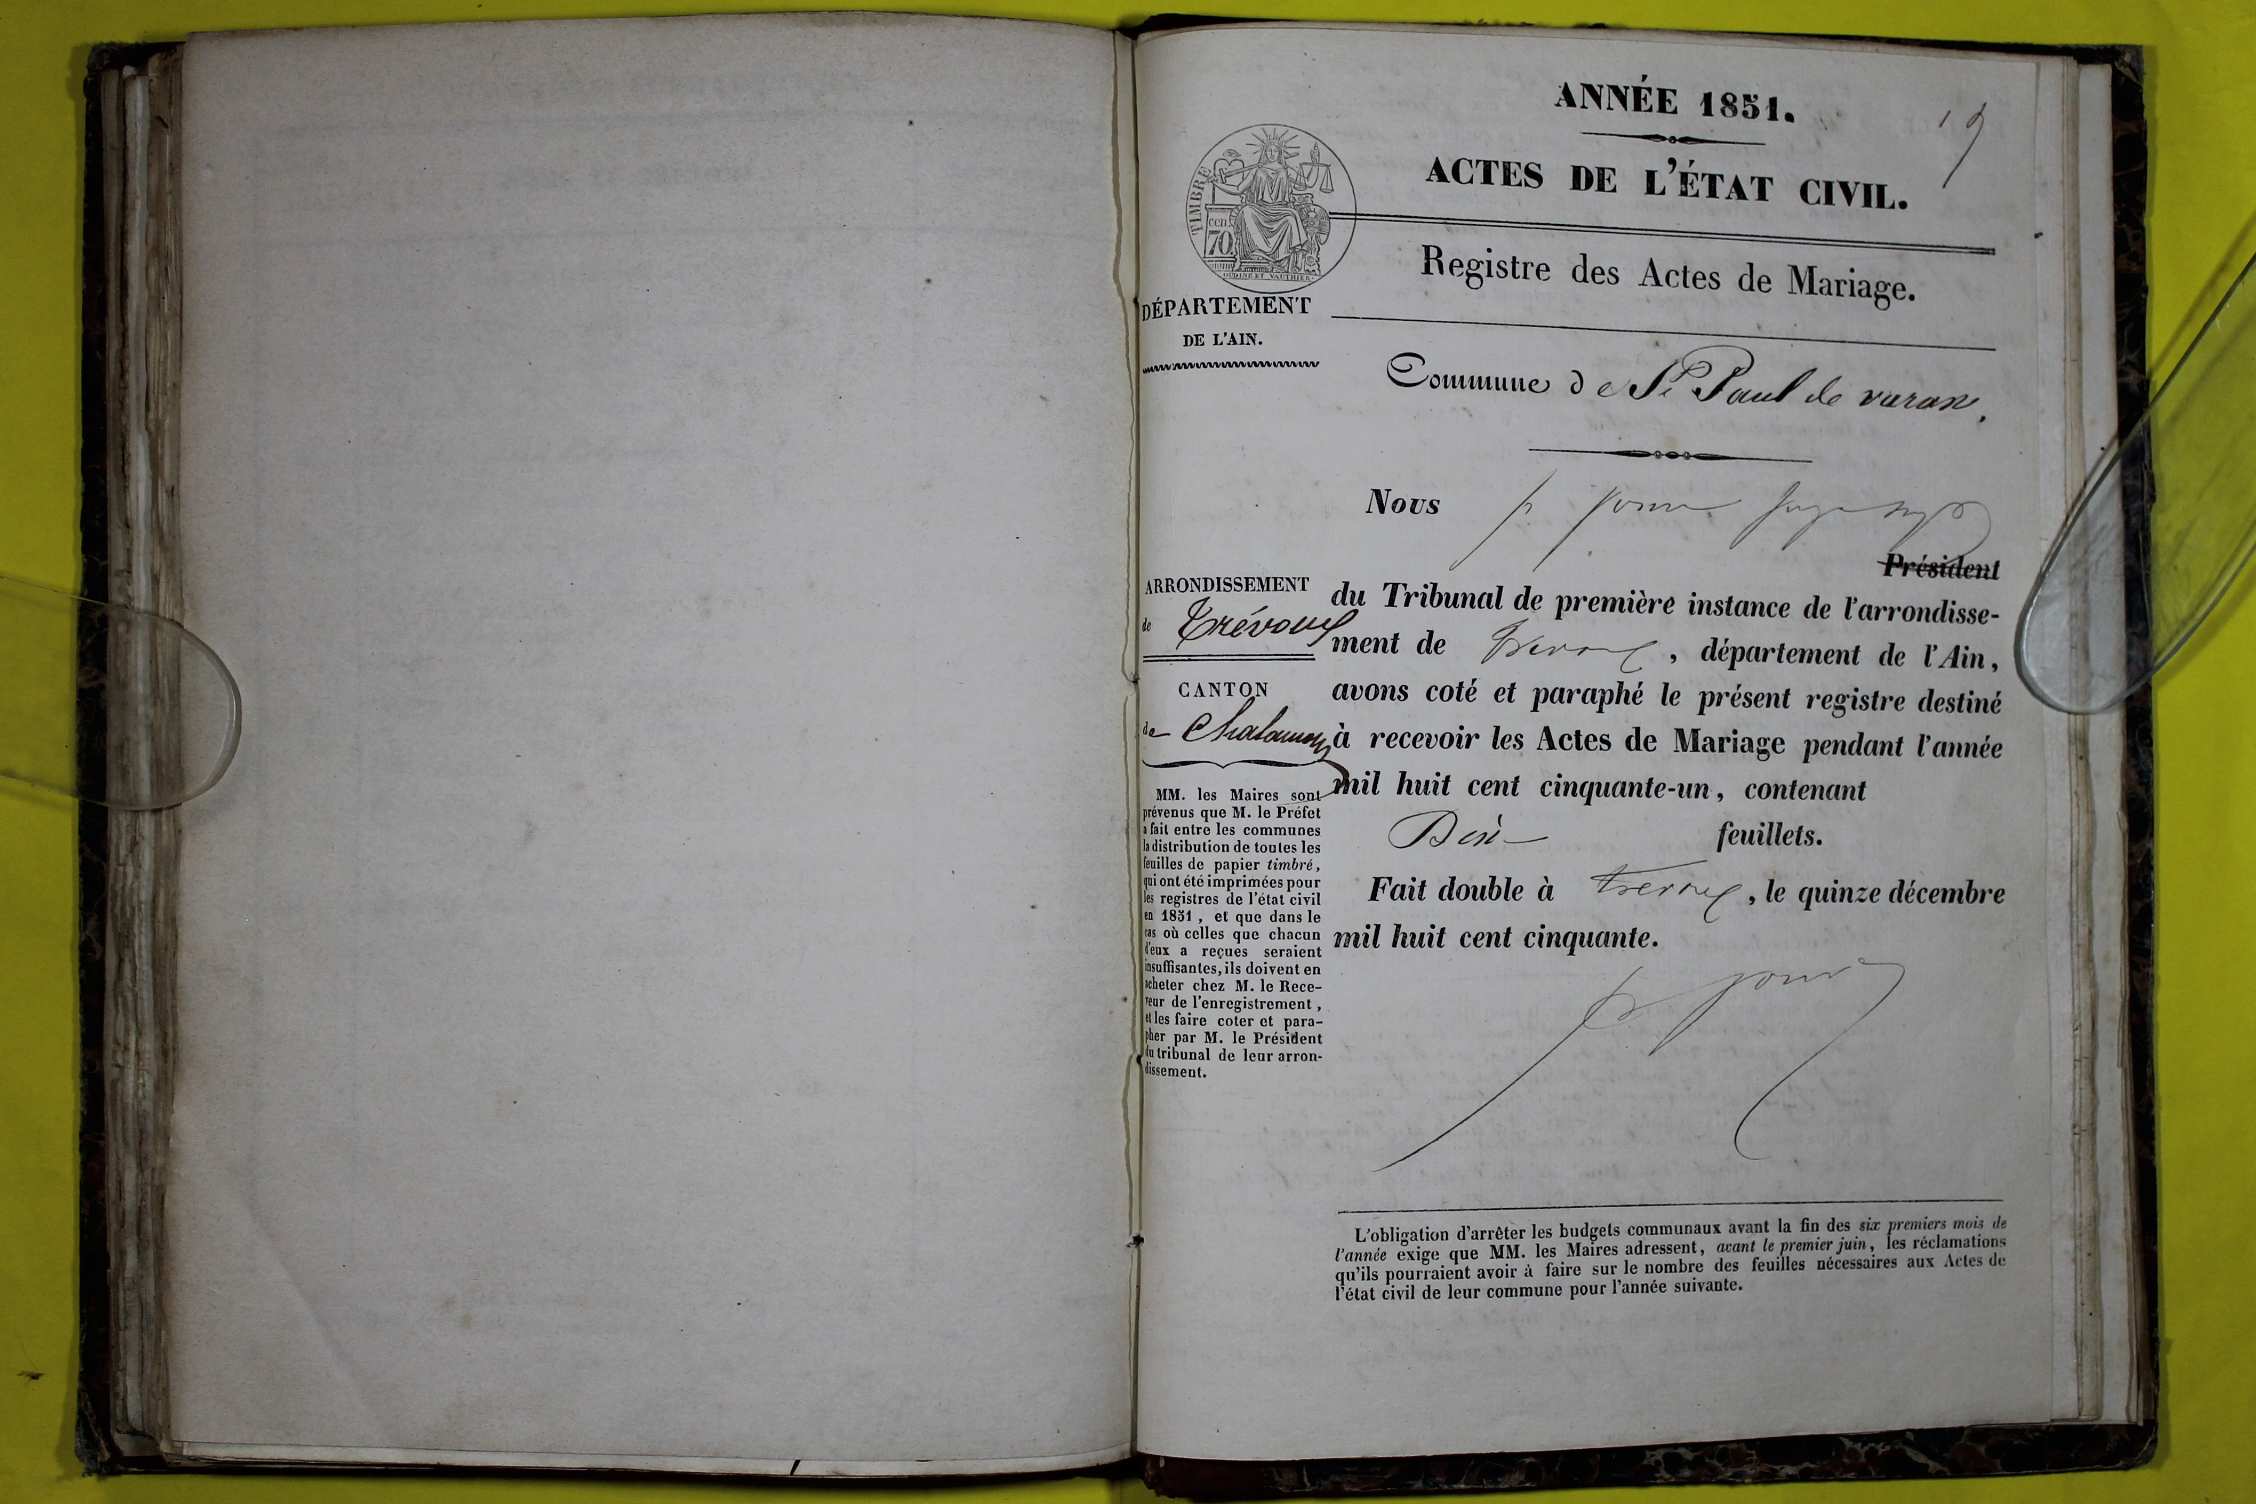 ANNÉE 1851.
ACTES DE L'ÉTAT CIVIL.
TIMBRE
cen.
70
OUDINÉ ET VAUTHIER.
Registre des Actes de Mariage.
DÉPARTEMENT
DE L'AIN.
Commune de St Paul de varax.
Nous
Président
ARRONDISSEMENT
de Trévoux
CANTON
de Chalamont
MM. les Maires sont
prévenus que M. le Préfet
a fait entre les communes
la distribution de toutes les
feuilles de papier timbré,
qui ont été imprimées pour
les registres de l'état civil
en 1851, et que dans le
cas où celles que chacun
d'eux a reçues seraient
insuffisantes, ils doivent en
acheter chez M. le Rece-
veur de l'enregistrement,
et les faire coter et para-
pher par M. le Président
du tribunal de leur arron-
dissement.
du Tribunal de première instance de l'arrondisse-
ment de Trevoux, département de l'Ain,
avons coté et paraphé le présent registre destiné
à recevoir les Actes de Mariage pendant l'année
mil huit cent cinquante-un, contenant
feuillets.
Fait double à trevoux, le quinze décembre
mil huit cent cinquante.
L'obligation d'arrêter les budgets communaux avant la fin des six premiers mois de
l'année exige que MM. les Maires adressent, avant le premier juin, les réclamations
qu'ils pourraient avoir à faire sur le nombre des feuilles nécessaires aux Actes de
l'état civil de leur commune pour l'année suivante.